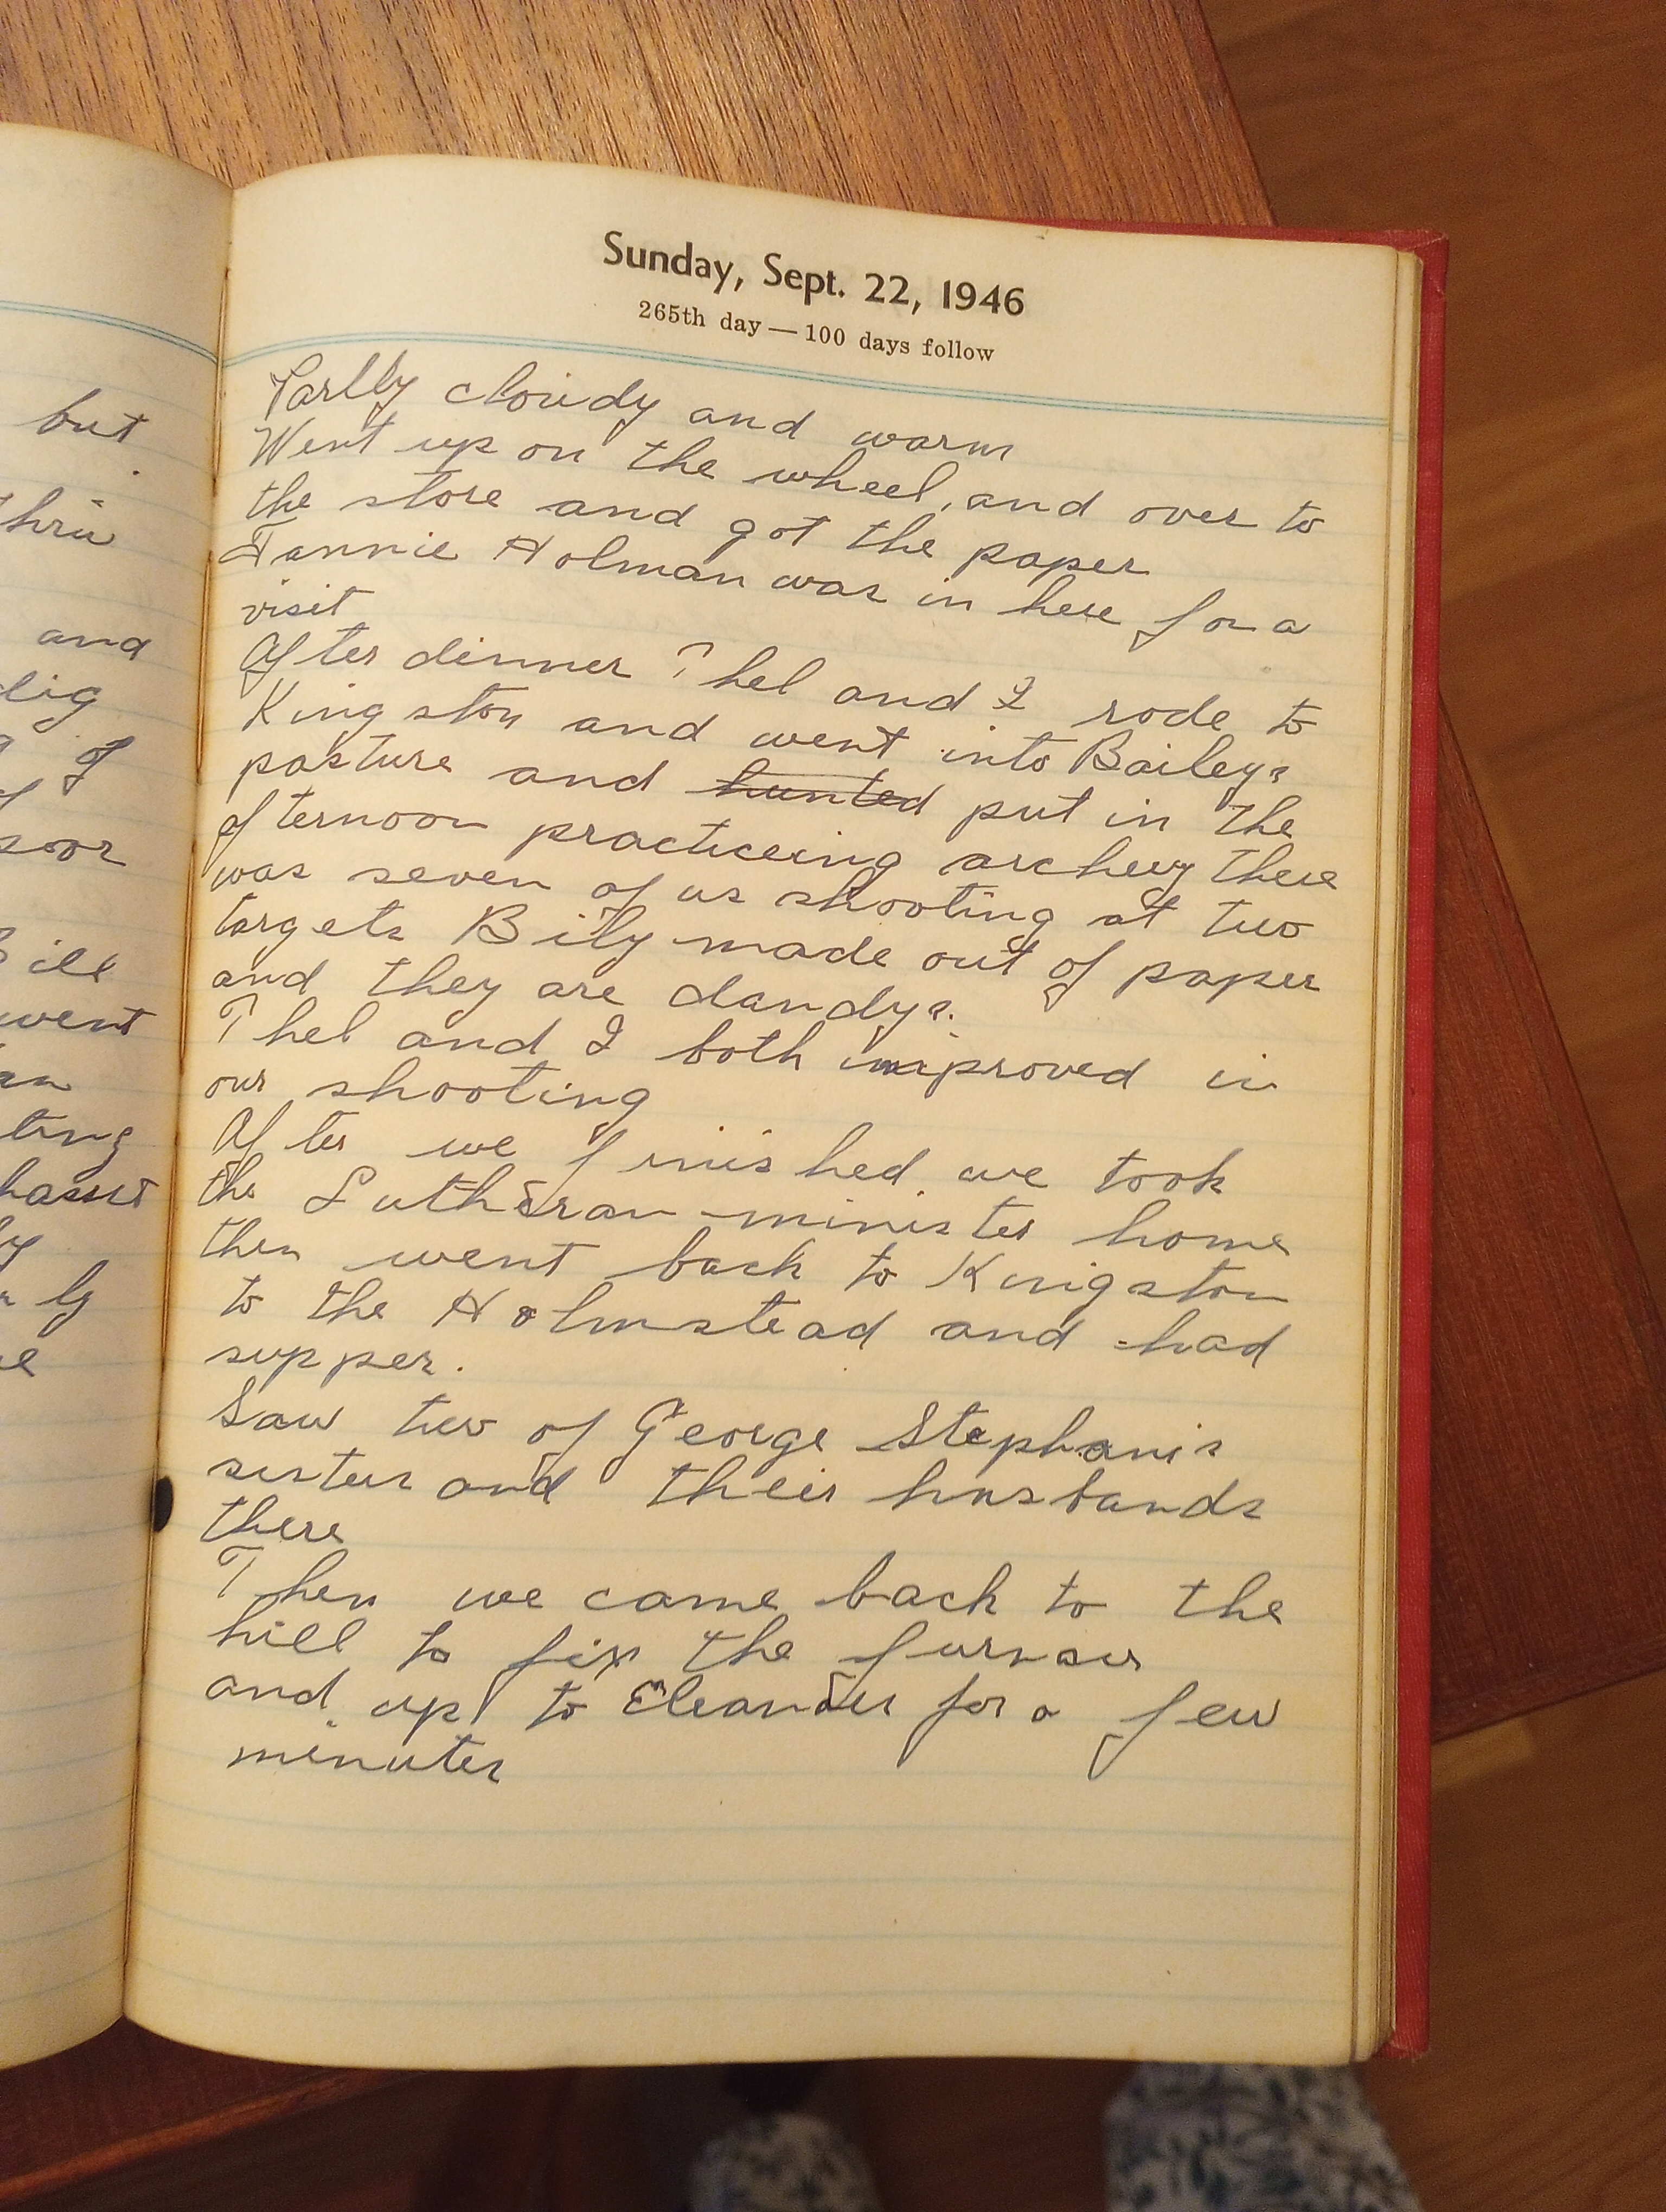 but
thru
and
dig
of
poor
ill
went
ting
ly
Sunday, Sept. 22, 1946
265th day — 100 days follow
Partly cloudy and warm
Went up on the wheel, and over to
the store and got the paper
Fannie Holman was in here for a
visit
After dinner Thel and I rode to
Kingston and went into Baileys
pasture and hunted put in the
afternoon practiceing archery there
was seven of us shooting at two
targets Billy made out of paper
and they are dandys.
Thel and I both improved in
our shooting
After we finished we took
the Lutheran minister home
then went back to Kingston
to the Holmstead and had
supper.
Saw two of George Stephanis
sisters and their husbands
there
Then we came back to the
hill to fix the furnace
and up to Eleanors for a few
minutes